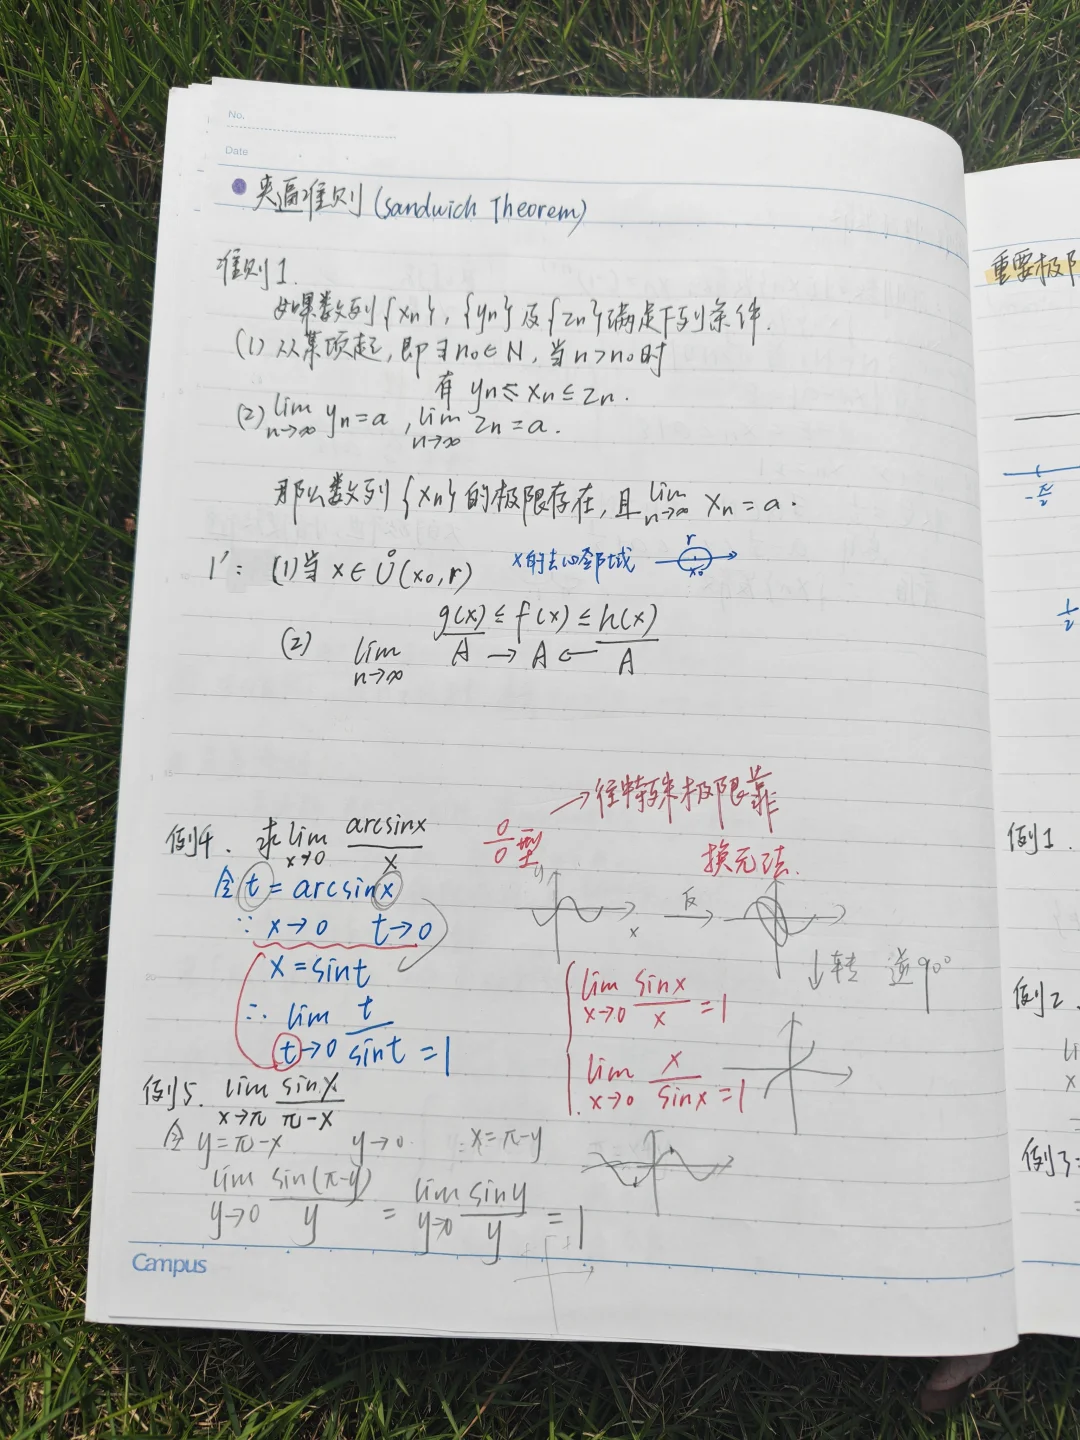 No.
Date
夹逼准则 (Sandwich Theorem)
准则1.
如果数列{xn}, {yn}及{zn}满足下列条件.
(1) 从某项起, 即∃n₀∈N, 当n>n₀时
有 yn≤xn≤zn.
(2) lim n→∞ yn=a, lim n→∞ zn=a.
那么数列{xn}的极限存在, 且 lim n→∞ xn=a.
1′: (1)当 x∈Ů(x₀,r) x的去心邻域 r x₀
g(x)≤f(x)≤h(x)
(2) lim n→∞ A → A ← A
→往特殊极限靠
例4. 求 lim x→0 arcsinx/x 0/0型 换元法.
令 t=arcsinx
∵ x→0 t→0
x=sint
∴ lim t→0 t/sint =1
y
x
反
↓转 逆90°
lim x→0 sinx/x =1
lim x→0 x/sinx =1
例5. lim x→π sinx/π-x
令 y=π-x y→0 x=π-y
lim y→0 sin(π-y)/y = lim y→0 siny/y =1
Campus
重要极
-π/2
1/2
例1.
例2.
li
x
例3